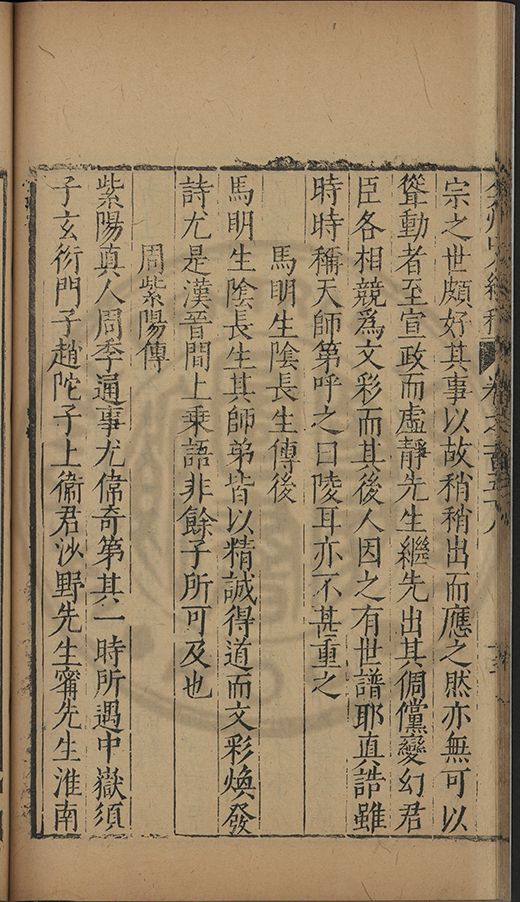 弇州山人續稿 卷之一百五十八
宗之世頗好其事以故稍稍出而應之然亦無可以
聳動者至宣政而虛靜先生繼先出其倜儻變幻君
臣各相競爲文彩而其後人因之有世譜耶真誥雖
時時稱天師第呼之曰陵耳亦不甚重之
馬明生陰長生傳後
馬明生陰長生其師弟皆以精誠得道而文彩煥發
詩尤是漢晉間上乘語非餘子所可及也
周紫陽傳
紫陽真人周季通事尤偉奇第其一時所遇中嶽須
子玄衍門子趙陀子上衞君沙野先生甯先生淮南